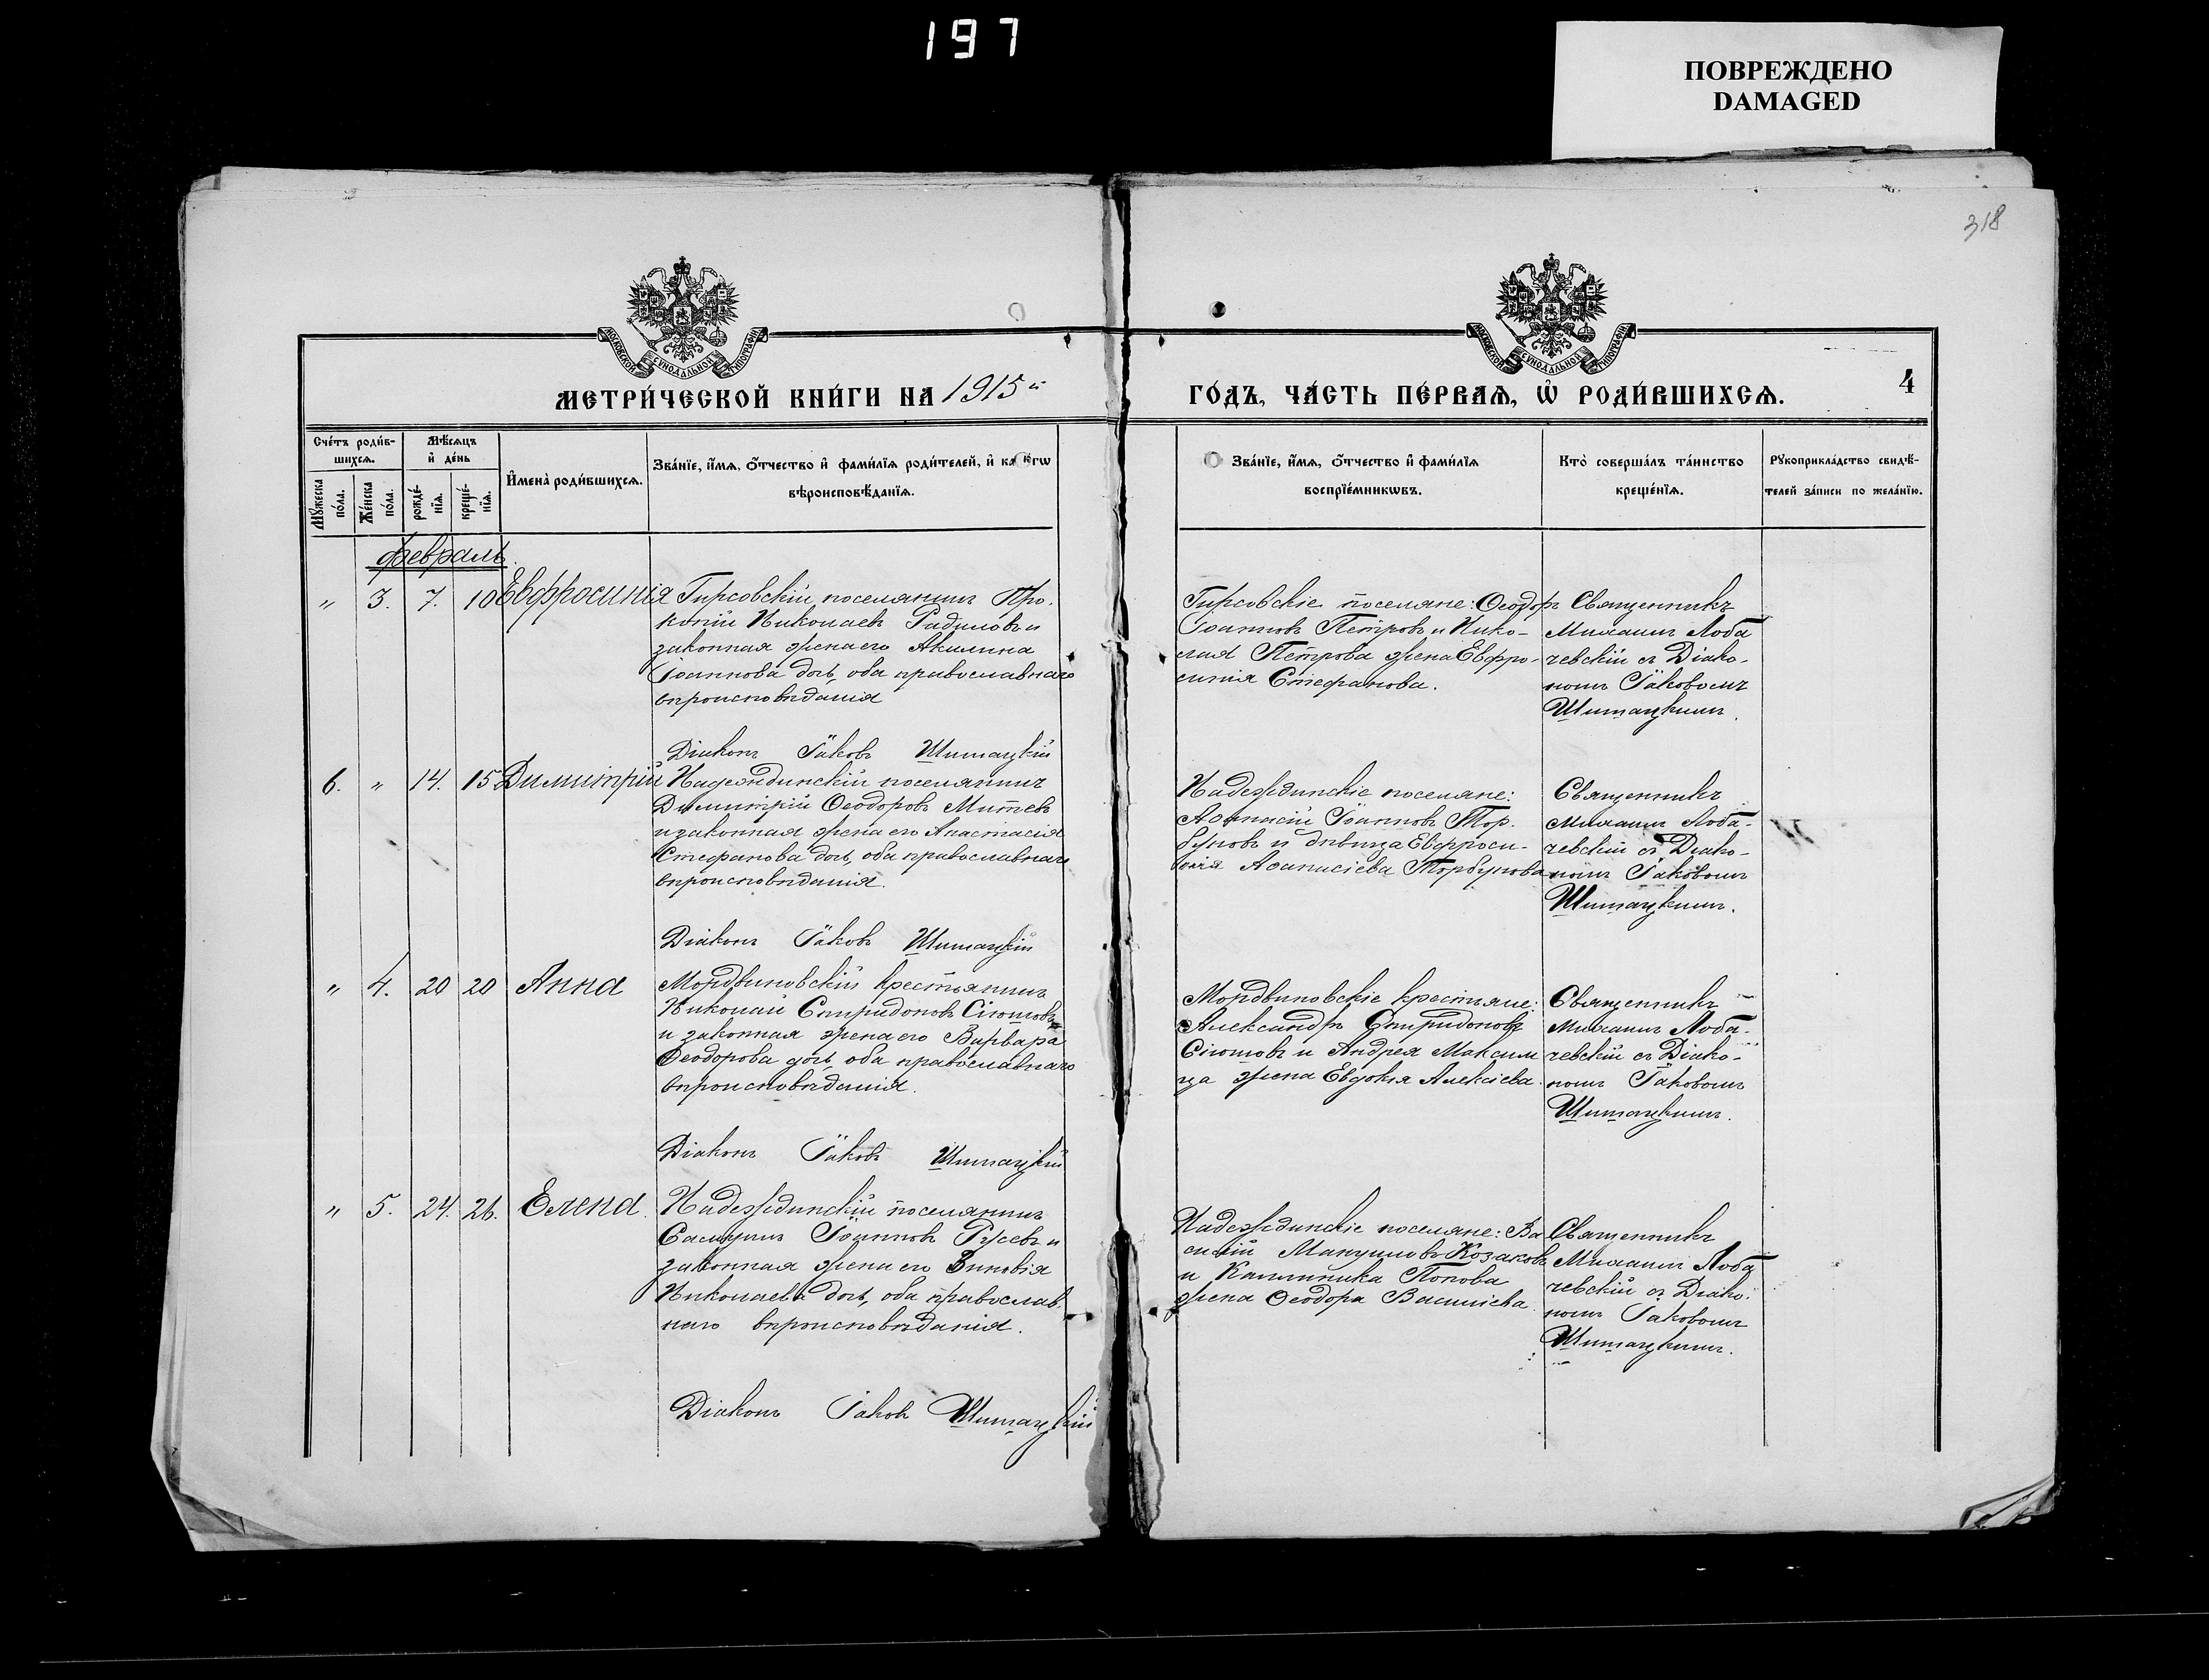 197
ПОВРЕЖДЕНО
DAMAGED
318
МОСКОВСКОЙ СѴНОДАЛЬНОЙ ТИПОГРАФІИ
МОСКОВСКОЙ СѴНОДАЛЬНОЙ ТИПОГРАФІИ
МЕТРИ́ЧЕСКОЙ КНИ́ГИ НА 1915й
ГО́ДЪ, ЧА́СТЬ ПЕ́РВАѦ, Ѡ҆ РОДИ́ВШИХСѦ.
4
Сче́тъ роди́в-
шихсѧ.
Мꙋ́жеска по́ла.
Же́нска по́ла.
Мѣ́сѧцъ
и҆ де́нь
рожде́-нїѧ.
креще́-нїѧ.
И҆мена̀ роди́вшихсѧ.
Зва́нїе, и҆́мѧ, ѻ҆́тчество и҆ фами́лїѧ роди́телей, и҆ ка кѡгѡ
вѣроисповѣ́данїѧ.
Зва́нїе, и҆́мѧ, ѻ҆́тчество и҆ фами́лїѧ
воспрїе́мникѡвъ.
Кто̀ соверша́лъ та́инство
креще́нїѧ.
Рꙋкоприкла́дство свидѣ́-
телей за́писи по жела́нїю.
Февраль.
" 3. 7. 10 Евфросинія
Гирсовскій поселянинъ Про-
копій Николаевъ Радиловъ и
законная жена его Акилина
Іоаннова дочь, оба православнаго
вѣроисповѣданія
Діаконъ Іаковъ Шишацкій
Гирсовскіе поселяне: Ѳеодоръ
Іоанновъ Петровъ и Нико-
лая Петрова жена Евфро-
синія Стефанова.
Священникъ
Михаилъ Лоба
чевскій съ Діако-
номъ Іаковомъ
Шишацкимъ.
6. " 14. 15 Димитрій
Надеждинскій поселянинъ
Димитрій Ѳеодоровъ Митевъ
и законная жена его Анастасія
Стефанова дочь, оба православнаго
вѣроисповѣданія.
Діаконъ Іаковъ Шишацкій
Надеждинскіе поселяне:
Аѳанасій Іоанновъ Тор-
буновъ и дѣвица Евфроси-
нія Аѳанасіева Торбунова
Священникъ
Михаилъ Лоба-
чевскій съ Діако-
номъ Іаковомъ
Шишацкимъ.
" 4. 20 20 Анна
Мордвиновскій крестьянинъ
Николай Спиридоновъ Сіютовъ
и законная жена его Варвара
Ѳеодорова дочь, оба православнаго
вѣроисповѣданія.
Діаконъ Іаковъ Шишацкій
Мордвиновскіе крестьяне:
Александръ Спиридоновъ
Сіютовъ и Андрея Максим
ца жена Евдокія Алексіева.
Священникъ
Михаилъ Лоба-
чевскій съ Діако-
номъ Іаковомъ
Шишацкимъ.
" 5. 24. 26. Елена.
Надеждинскій поселянинъ
Самуилъ Іоанновъ Русевъ и
законная жена его Зиновія
Николаева дочь, оба православ-
наго вѣроисповѣданія.
Діаконъ Іаковъ Шишацкій
Надеждинскіе поселяне: Ва
силій Мануиловъ Козаковъ
и Каллиника Попова
жена Ѳеодора Василіева.
Священникъ
Михаилъ Лоба
чевскій съ Діако-
номъ Іаковомъ
Шишацкимъ.